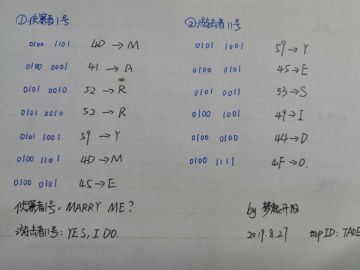 ① 侦察者1号
0100 1101 4D → M
0100 0001 41 → A
0101 0010 52 → R
0101 0010 52 → R
0101 1001 59 → Y
0100 1101 4D → M
0100 0101 45 → E
侦察者1号: MARRY ME?
游击者11号: YES, I DO.
② 游击者11号
0101 1001 59 → Y
0100 0101 45 → E
0101 0011 53 → S
0100 1001 49 → I
0100 0100 44 → D
0100 1111 4F → O.
by 梦起开阳
2019.8.27